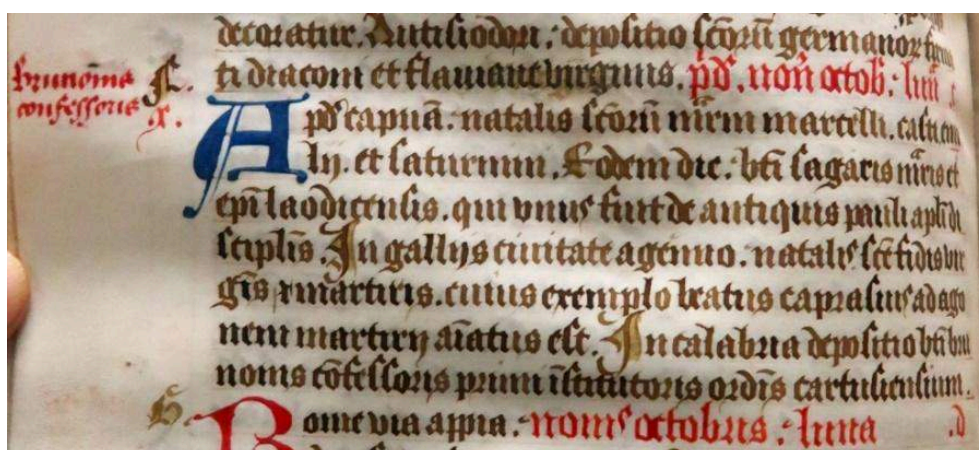 decoratur. Autisiodori. depositio scoru germanor
Brunonis
confessoris
f.
x.
ti diaconi et flaviane virginis. pd. non octob. luna
Apd capua. natalis scoru mrm marcelli. casti. emi
lij. et saturnini. Eodem die. bti sagaris mris et
epi laodicensis. qui unus fuit de antiquis pauli apli di
sciplis. In gallijs civitate agenno. natalis sce fidis vir
gis et martiris. cuius exemplo beatus caprasius ad ago
nem martirij aiatus est. In calabria depositio bti bru
nonis cofessoris primi istitutoris ordis cartusiensium.
Rome via appia. nonis octobris. luna .d